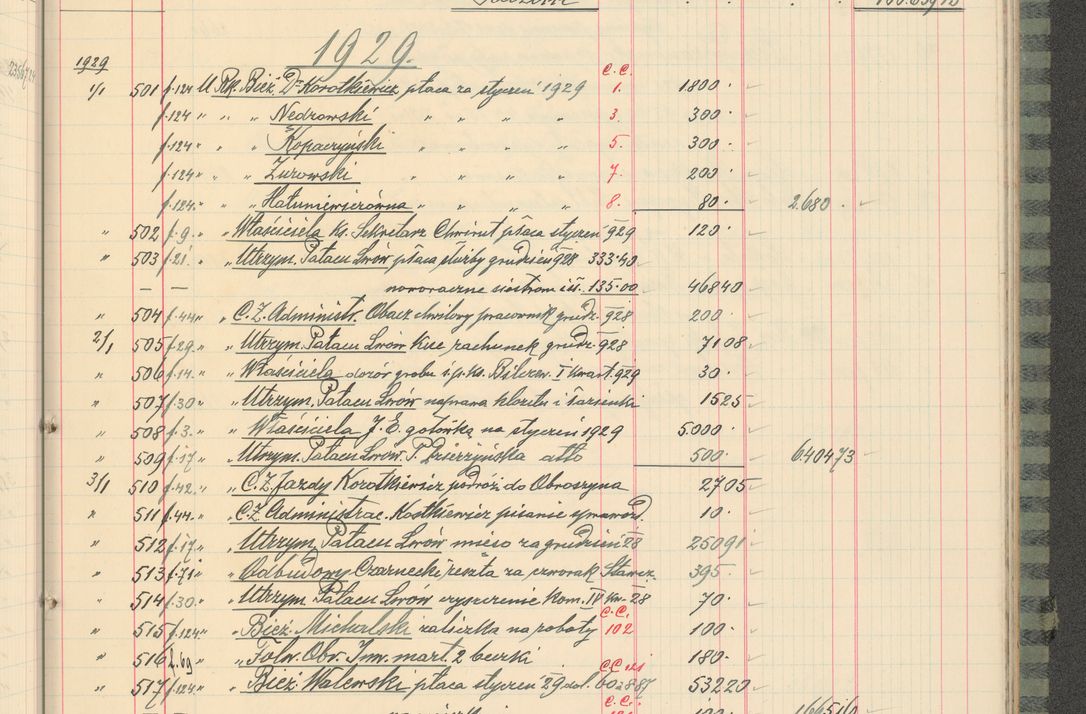 1929.
1929 C.C.
1/1 501 f.124 U Rk. Bież. Dr Korotkiewicz płaca za styczeń 1929 1. 1800.
f.124 " " " Nedrowski " " " " 3. 300.
f.124 " " " Kopaczyński " " " " 5. 300.
f.124 " " " Żurowski " " " " 7. 200.
f.124 " " " Hałuniewiczówna " " " " 8. 80. 2.680.
" 502 f.9. " " Właściciela Ks. Sekretarz Chwirut płaca styczeń 929 120.
" 503 f.21. " " Utrzym. Pałacu Lwów płaca służby grudzień 928 333.40
— — noworoczne siostrom i śl. 135.00 46840
" 504 f.44 " " C.Z. Administr. Obacz chwilowy pracownik grudz. 928 200.
2/1 505 f.29. " " Utrzym. Pałacu Lwów Kuc rachunek grudz. 928 7108
" 506 f.14. " " Właściciela dozór grobu ś.p. Ks. Bilczew. I Kwart. 929 30.
" 507 f.30 " " Utrzym. Pałacu Lwów naprawa klozetu i łazienki 1525
" 508 f.3. " " Właściciela J.E. gotówką na styczeń 1929 5.000.
" 509 f.17 " " Utrzym. Pałacu Lwow. P. Dzierżyńska atto 500. 640473
3/1 510 f.42. " " C.Z. Jazdy Korotkiewicz podróż do Obroszyna 2705
" 511 f.44. " " C.Z. Administrac. Kostkiewicz pisanie sprawozd. 10.
" 512 f.17. " " Utrzym. Pałacu Lwów mięso za grudzień 28 25091
" 513 f.71 " " Odbudowy Czarnecki reszta za czworak Stawcz. 395.
" 514 f.30. " " Utrzym Pałacu Lwow czyszczenie kom. IV kw. 28 70.
C.C.
" 515 f.124. " " Bież. Michalski zaliczka na roboty 102 100.
" 516 f.69 " Folw. Obr. Inw. mart. 2 beczki 180.
" 517 f.124 " " Bież Walewski płaca styczeń 29 dol. 60 à 887 53220
C.C.